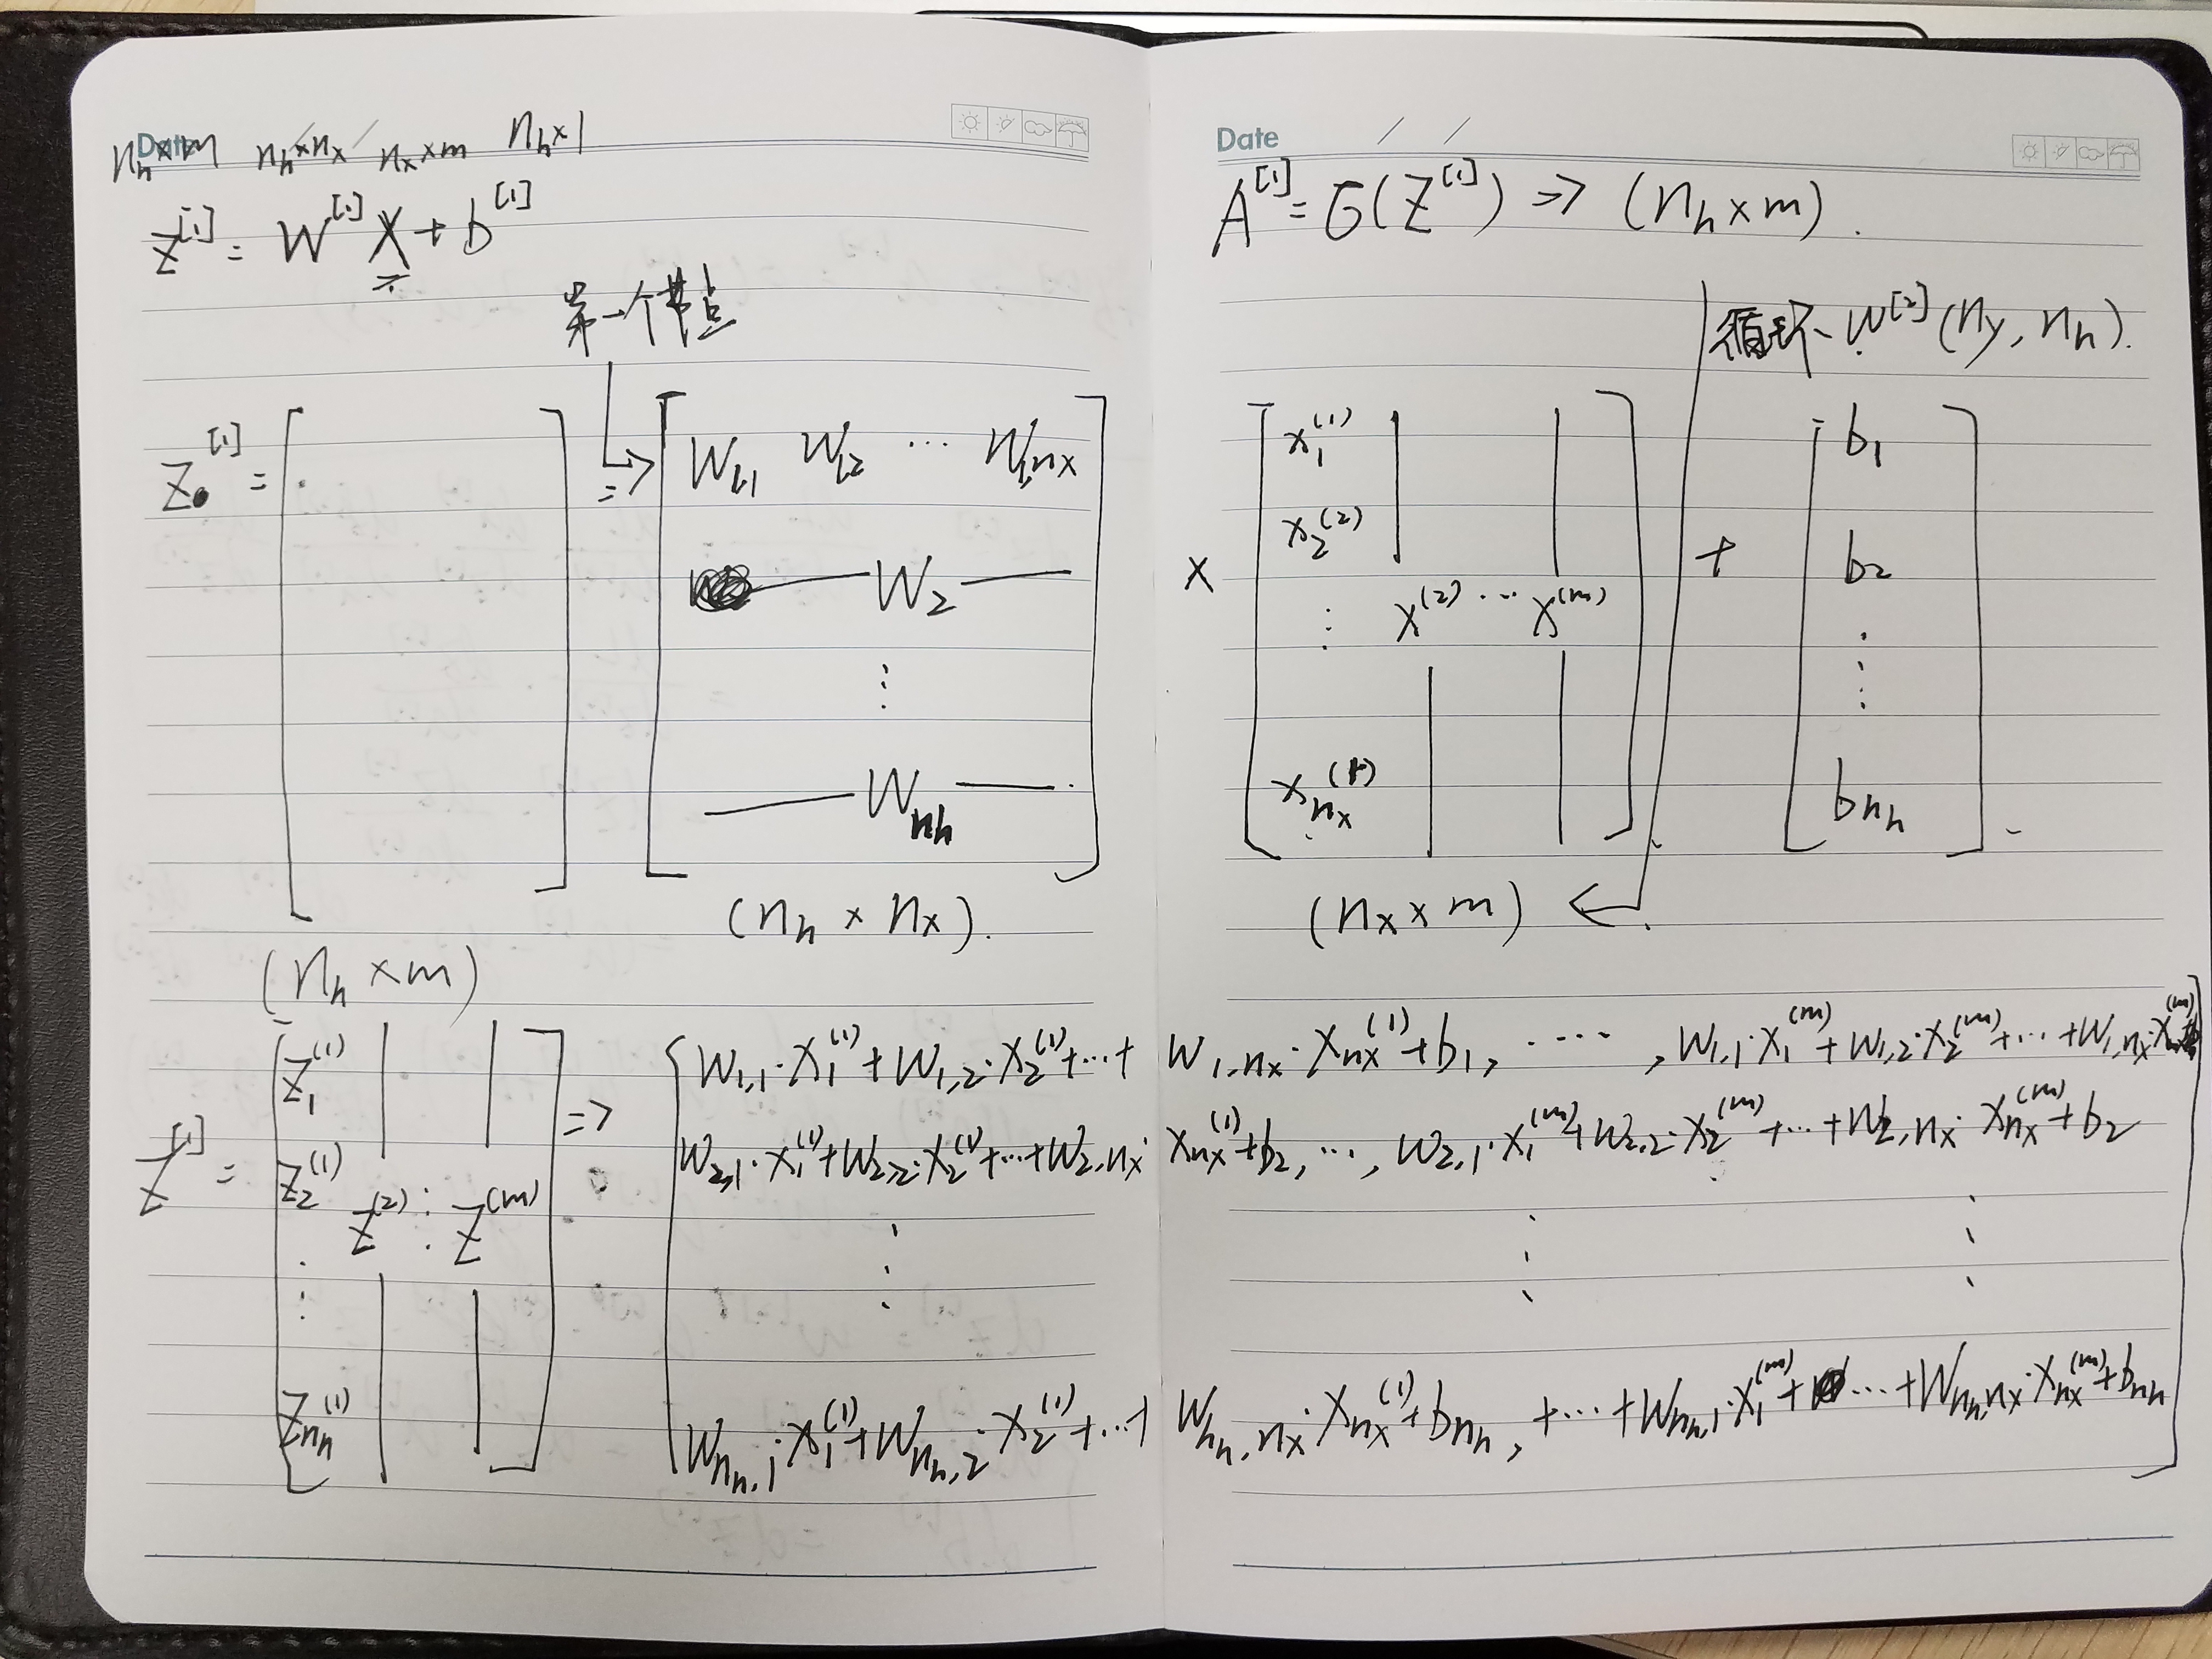 Date
n_h×m n_h×n_x n_x×m n_h×1
Z^[1] = W^[1] X + b^[1]
第一个节点
Z^[1] = [ ] => [ W_1,1 W_12 ... W_1,nx
W_2
⋮
W_nh ]
(n_h × n_x).
(n_h × m)
Date
A^[1] = G(Z^[1]) => (n_h × m).
循环 W^[2] (n_y, n_h).
× [ x_1^(1)
x_2^(2)
⋮ x^(2) ... x^(m)
x_nx^(1) ] + [ b_1
b_2
⋮
b_nh ]
(n_x × m) ←
Z^[1] = [ Z_1^(1)
Z_2^(1) Z^(2) : Z^(m)
⋮
Z_nh^(1) ] =>
[ W_1,1·x_1^(1) + W_1,2·x_2^(1) + ... + W_1,nx·x_nx^(1) + b_1, ...., W_1,1·x_1^(m) + W_1,2·x_2^(m) + ... + W_1,nx·x_nx^(m)
W_2,1·x_1^(1) + W_2,2·x_2^(1) + ... + W_2,nx·x_nx^(1) + b_2, ..., W_2,1·x_1^(m) + W_2,2·x_2^(m) + ... + W_2,nx·x_nx^(m) + b_2
⋮ ⋮ ⋮
W_nh,1·x_1^(1) + W_nh,2·x_2^(1) + ... + W_nh,nx·x_nx^(1) + b_nh, + ... + W_nh,1·x_1^(m) + ... + W_nh,nx·x_nx^(m) + b_nh ]